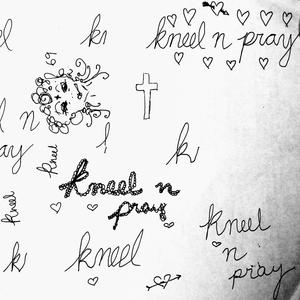 kneel n pray
69
n
ay
kneel
k
kneel
kneel n
pray
kneel
k
kneel
n
pray